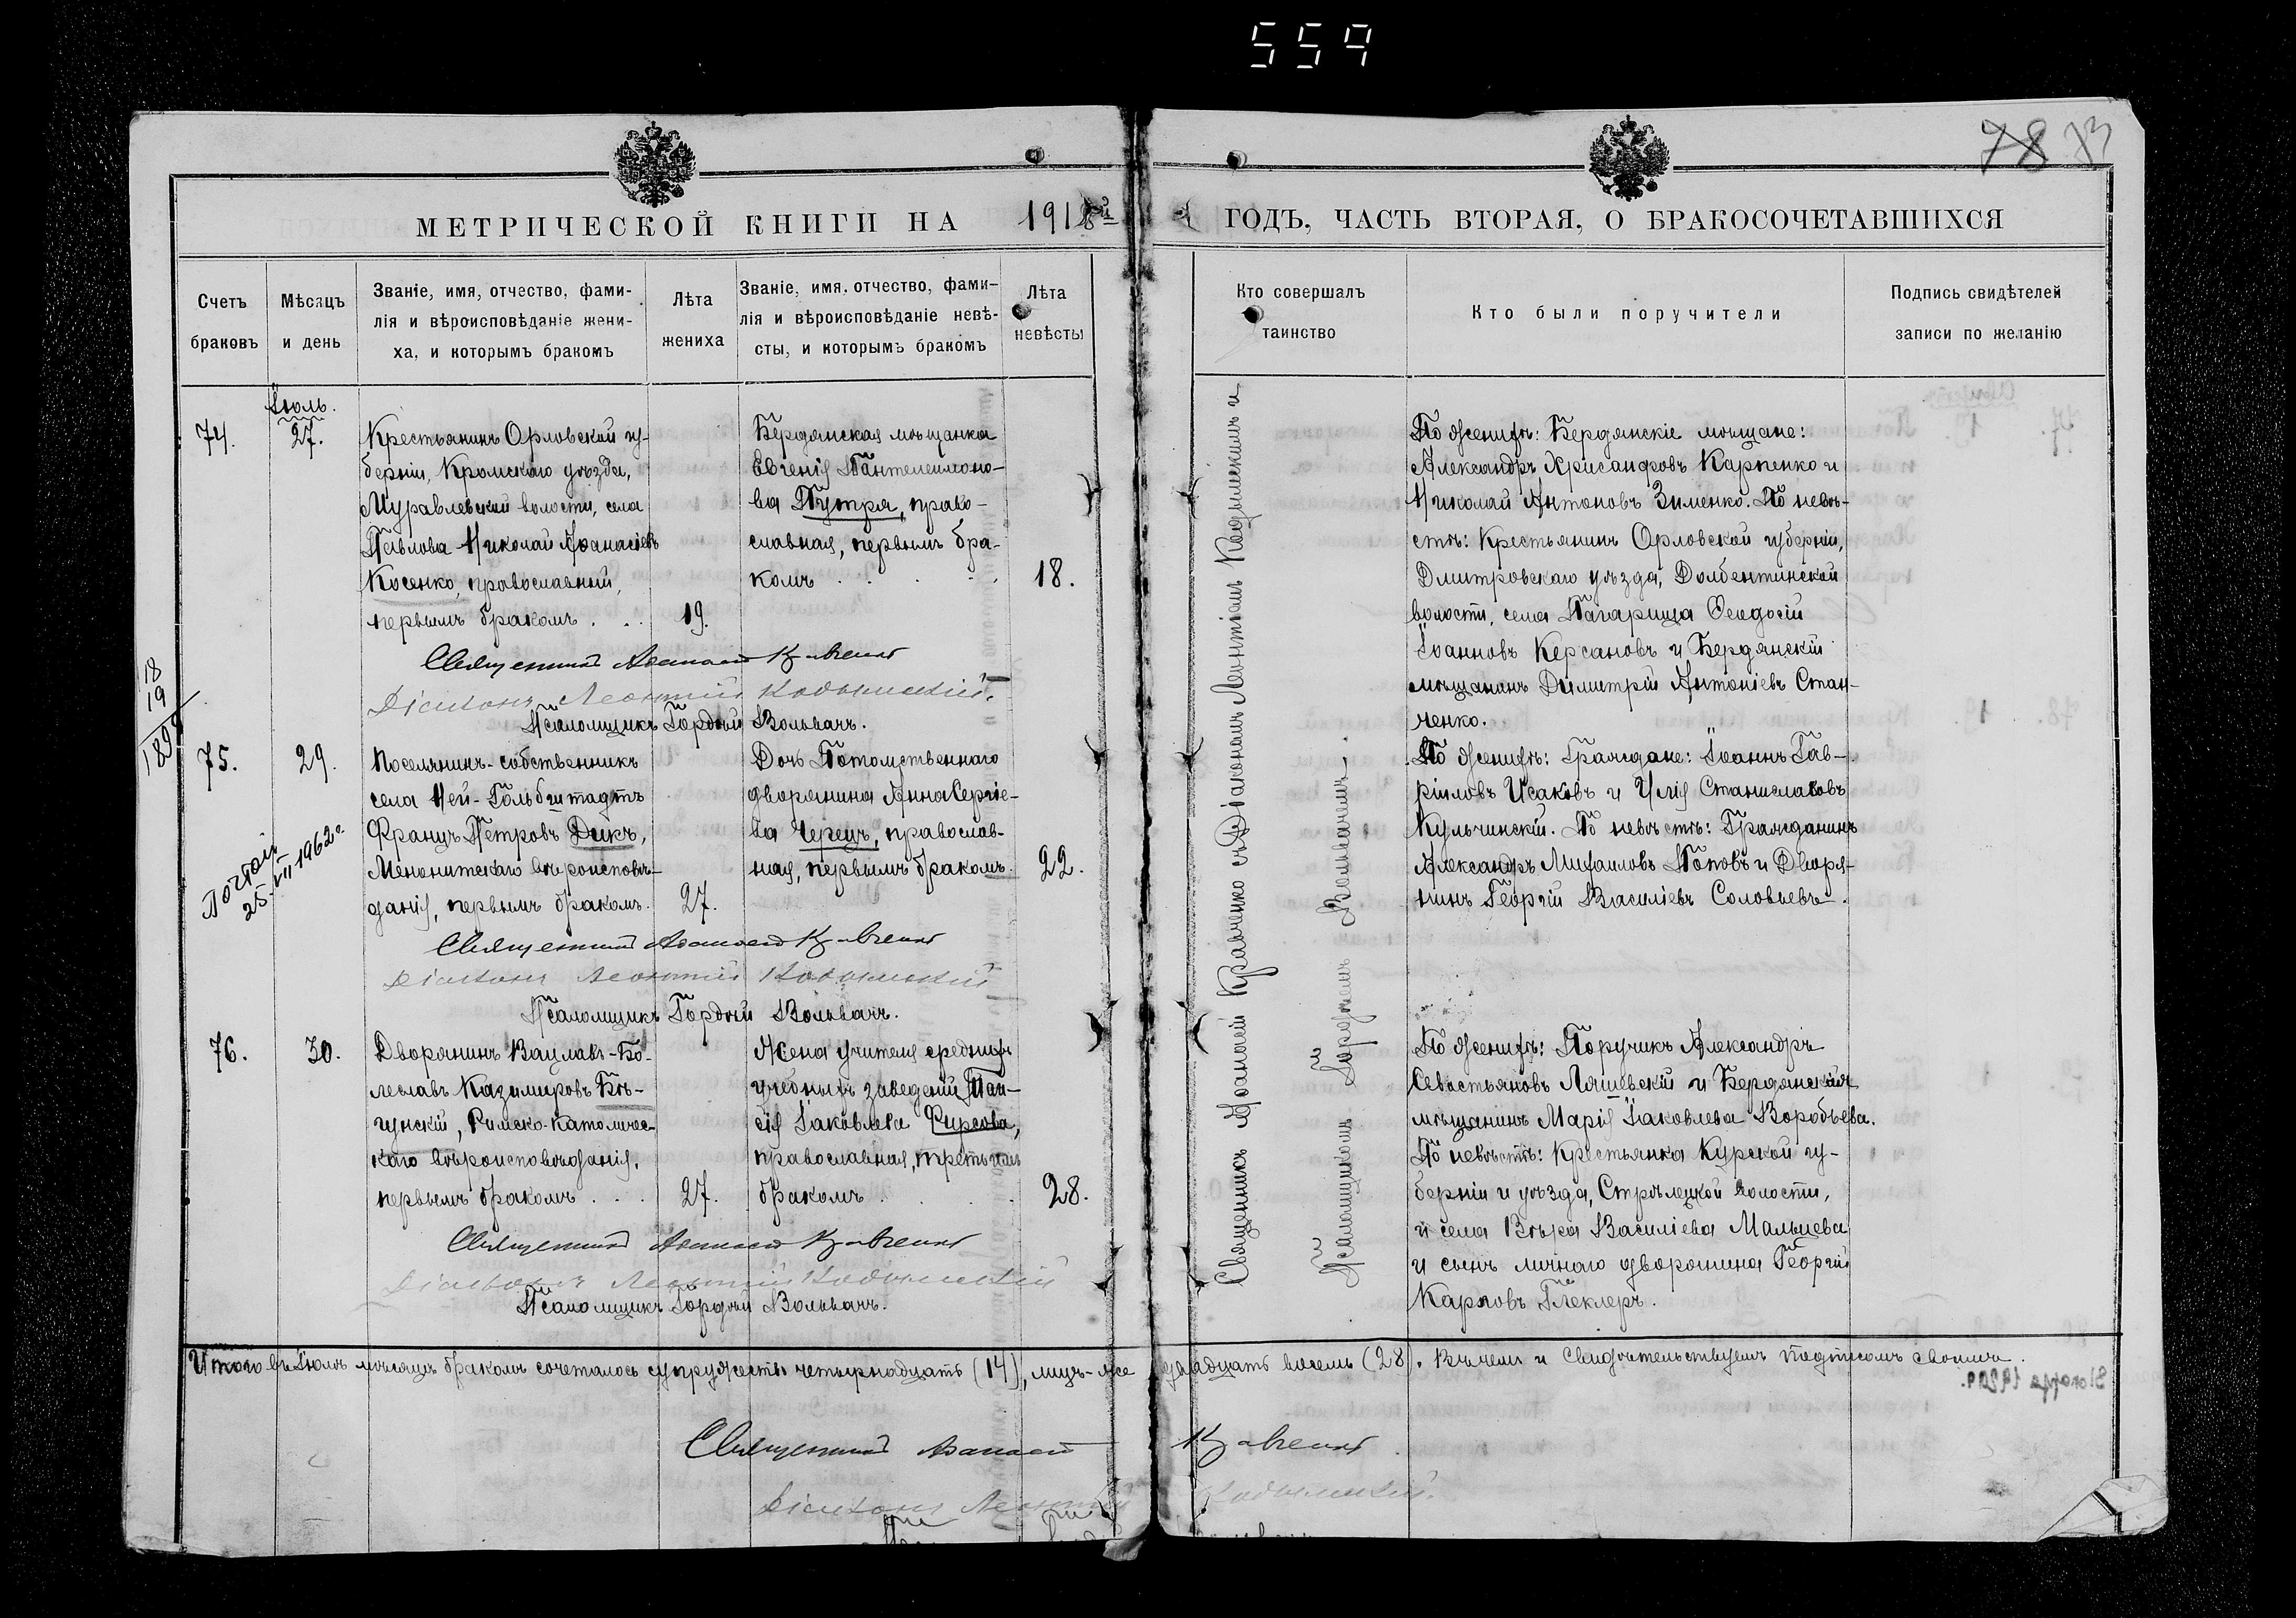 559
78 73
МЕТРИЧЕСКОЙ КНИГИ НА 1918й ГОДЪ, ЧАСТЬ ВТОРАЯ, О БРАКОСОЧЕТАВШИХСЯ
Счетъ
браковъ
Мѣсяцъ
и день
Званіе, имя, отчество, фами-
лія и вѣроисповѣданіе жени-
ха, и которымъ бракомъ
Лѣта
жениха
Званіе, имя, отчество, фами-
лія и вѣроисповѣданіе невѣ-
сты, и которымъ бракомъ
Лѣта
невѣсты
Кто совершалъ
таинство
Кто были поручители
Подпись свидѣтелей
записи по желанію
Іюль.
74.
27.
Крестьянинъ Орловской гу-
берніи, Кромскаго уѣзда,
Муравлевской волости, села
Павлова Николай Аѳанасіевъ
Косенко, православный,
первымъ бракомъ . . .
19.
Бердянская мѣщанка
Евгенія Пантелеимоно-
ва Путря, право-
славная, первымъ бра-
комъ . . .
18.
Священникъ Аѳанасій Кравченко
Діаконъ Леонтій Кодымскій.
Псаломщикъ Гордѣй Вольвачъ.
По женихѣ: Бердянскіе мѣщане:
Александръ Хрисанфовъ Карпенко и
Николай Антоновъ Зименко. По невѣ-
стѣ: Крестьянинъ Орловской губерніи,
Дмитровскаго уѣзда, Долбентинской
волости, села Пагарища Ѳеодосій
Іоанновъ Керсановъ и Бердянскій
мѣщанинъ Димитрій Антоніевъ Стан-
ченко.
18
19
189
75.
29.
Поселянинъ-собственникъ
села Ней-Гальбштадтъ
Францъ Петровъ Дикъ,
Менонитскаго вѣроисповѣ-
данія, первымъ бракомъ.
27.
Дочь Потомственнаго
дворянина Анна Сергіе-
ва Черецъ, православ-
ная, первымъ бракомъ.
22.
25-VII 1962 г.
Священникъ Аѳанасій Кравченко
Діаконъ Леонтій Кодымскій
Псаломщикъ Гордѣй Вольвачъ.
По женихѣ: Граждане: Іоаннъ Гав-
ріиловъ Исаковъ и Илія Станиславовъ
Кульчинскій. По невѣстѣ: Гражданинъ
Александръ Михаиловъ Поповъ и Дворя-
нинъ Георгій Василіевъ Соловьевъ.
76.
30.
Дворянинъ Вацлавъ-Бо-
леславъ Казимировъ Бѣ-
гунскій, Римско-Католичес-
каго вѣроисповѣданія,
первымъ бракомъ . . .
27.
Жена учителя среднихъ
учебныхъ заведеній Таи-
сія Іаковлева Фирсова,
православная, третьимъ
бракомъ . . .
28.
Священникъ Аѳанасій Кравченко
Діаконъ Леонтій Кодымскій
Псаломщикъ Гордѣй Вольвачъ.
По женихѣ: Поручикъ Александръ
Севастьяновъ Ляшевскій и Бердянская
мѣщанинъ Марія Іаковлева Воробьева.
По невѣстѣ: Крестьянка Курской гу-
берніи и уѣзда, Стрѣлецкой волости,
и села Вѣра Василіева Мальцева
и сынъ личнаго дворянина Георгій
Карповъ Глеклеръ.
Священникъ Аѳанасій Кравченко съ Діакономъ Леонтіемъ Кодымскимъ и
Псаломщикомъ Гордѣемъ Вольвачемъ.
Итого въ Іюлѣ мѣсяцѣ бракомъ сочеталось супружествъ четырнадцать (14), лицъ-же двадцать восемь (28). Въ чемъ и свидѣтельствуемъ подписомъ своимъ.
Священникъ Аѳанасій Кравченко
Діаконъ Леонтій Кодымскій.